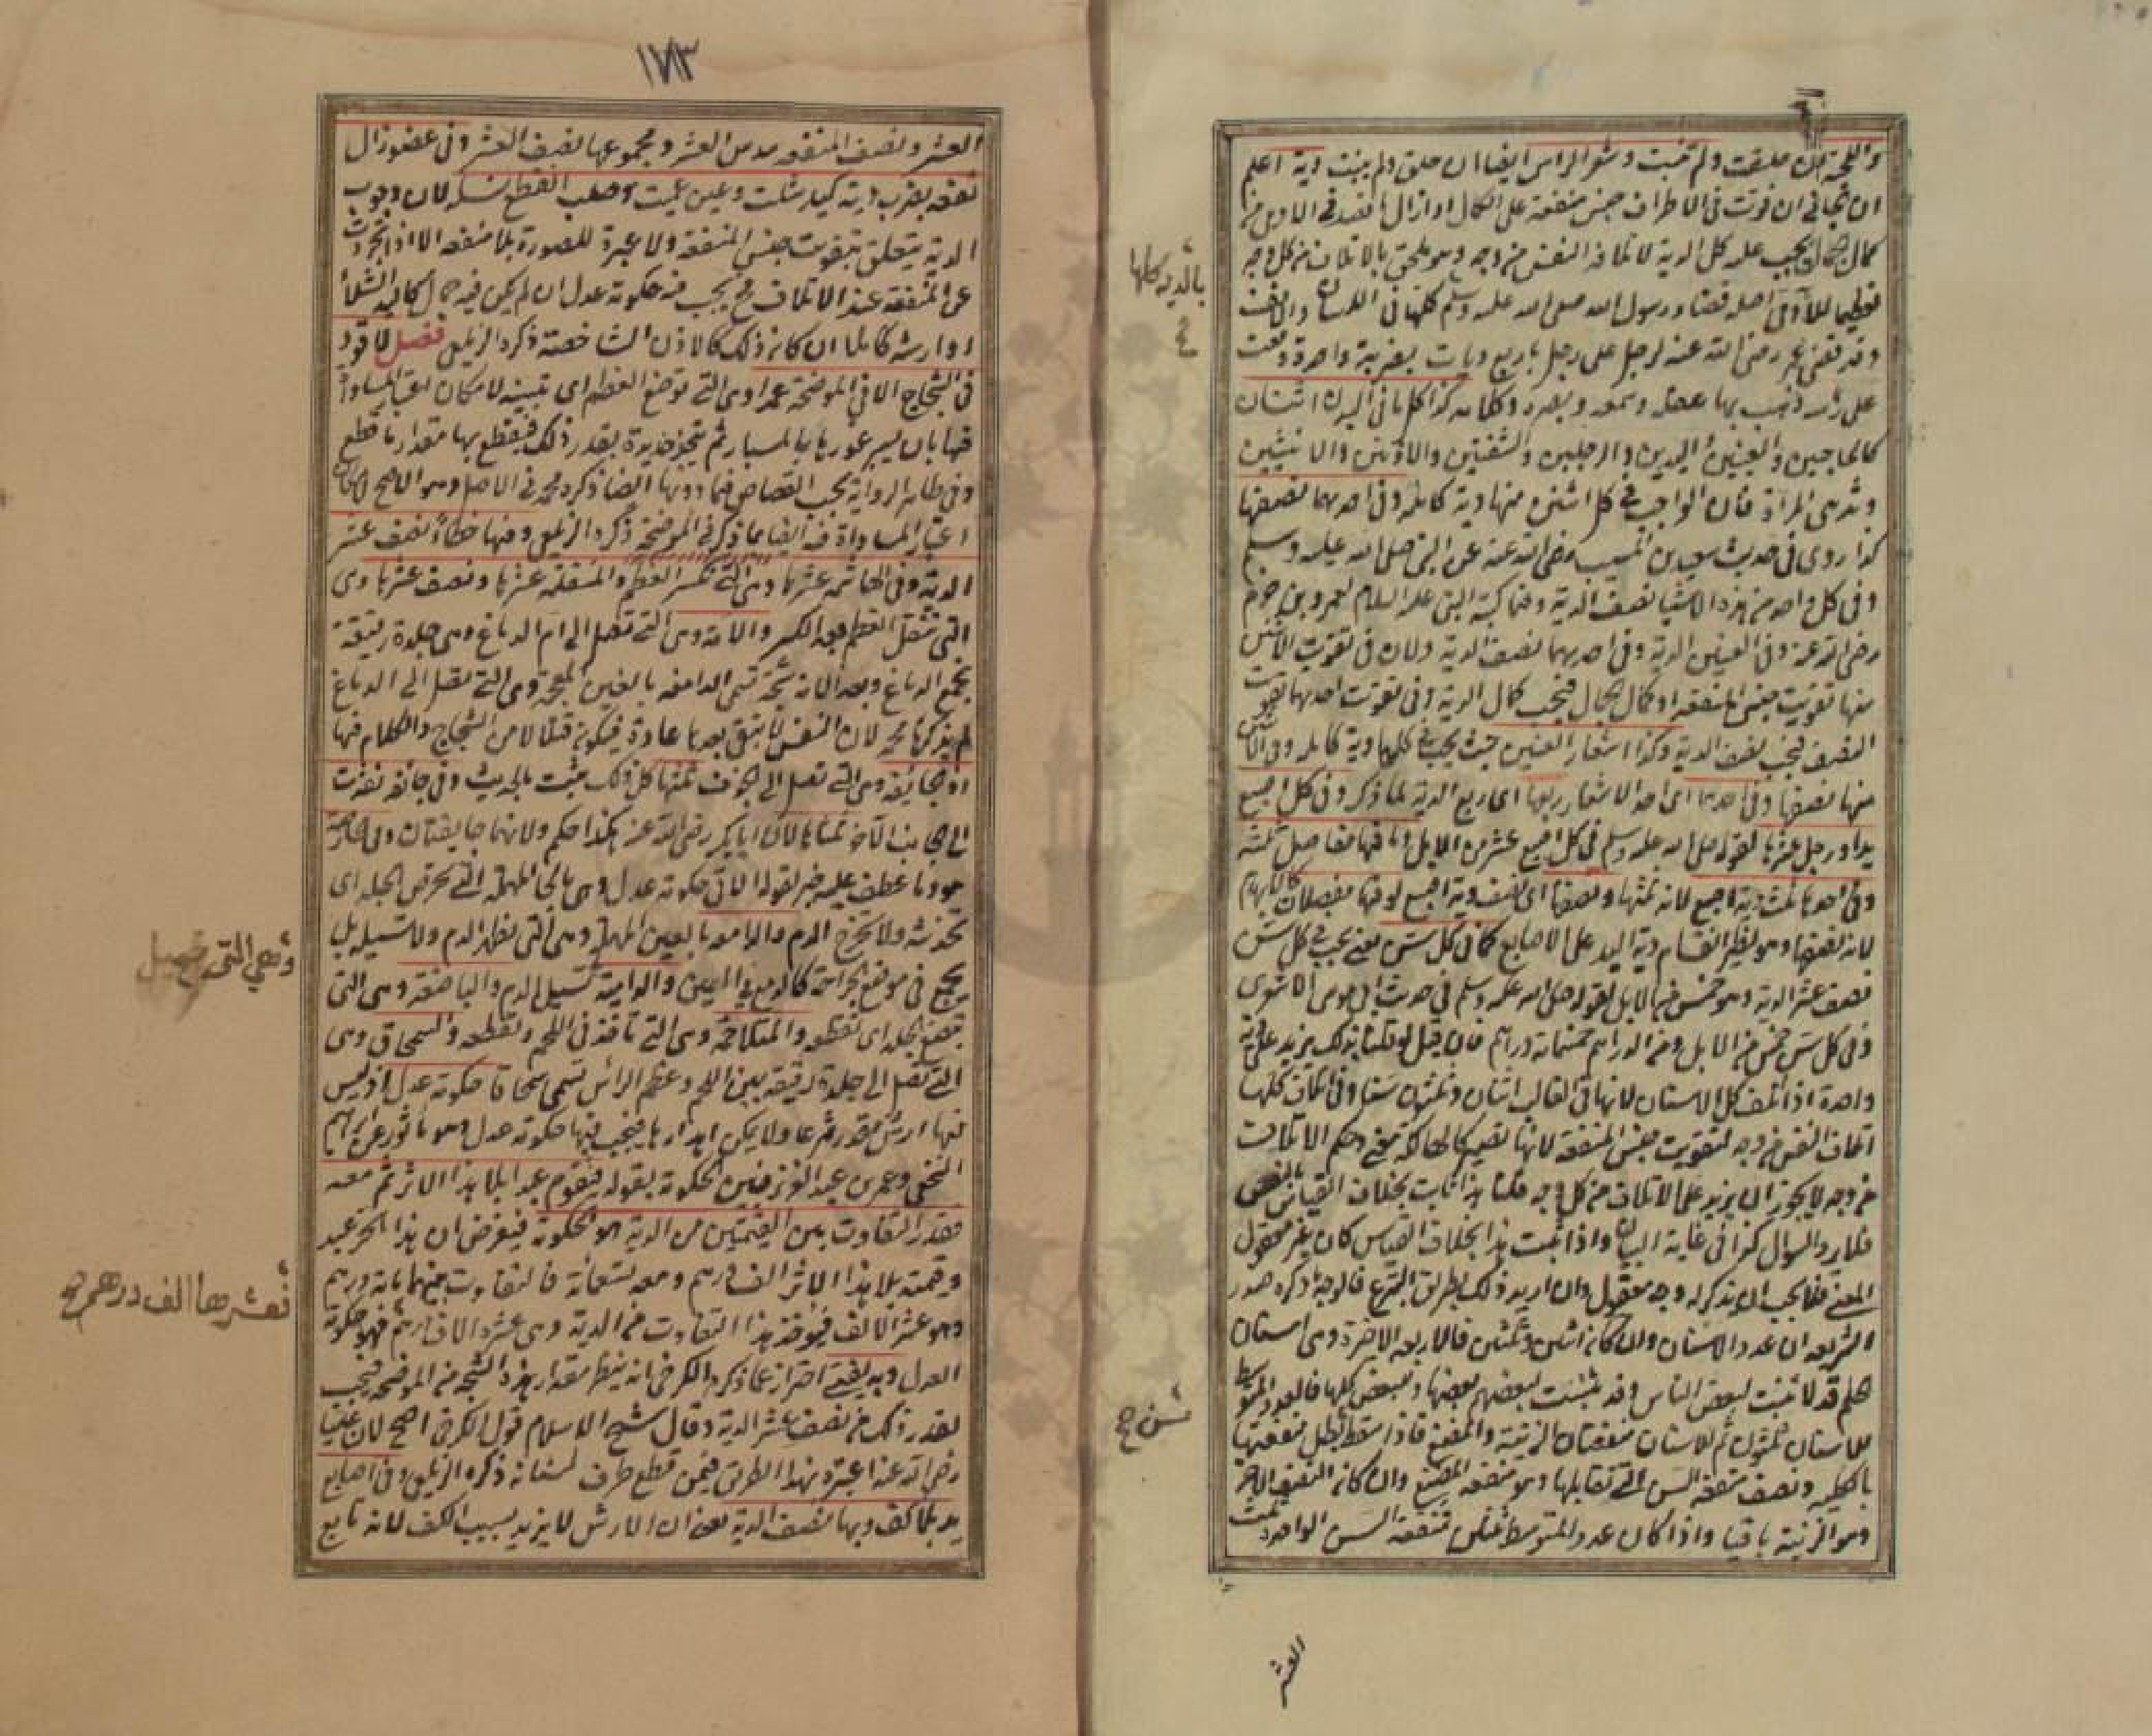 واللحية ان حلقت ولم تنبت وشعر الراس ايضا ان حلق ولم ينبت دية اعلم
ان الجاني ان فوت في الاطراف جنس منفعة على الكمال او ازال ما قصد في الادمي من
كمال الجمال يجب عليه كل الدية لاتلافه النفس من وجه وهو ملحق بالاتلاف من كل وجه
تعظيما للآدمي اصله قضاء رسول الله صلى الله عليه وسلم كلها في اللسان والانف
بالدية كلها
وقد قضى عمر رضي الله عنه لرجل على رجل باربع ديات بضربة واحدة وقعت
على راسه ذهب بها عقله وسمعه وبصره وكلامه كذا كل ما في البدن اثنان
كالحاجبين والعينين واليدين والرجلين والشفتين والاذنين والانثيين
وثديي المراة فان الواجب في كل اثنين منها دية كاملة وفي احدهما نصفها
كذا روى في حديث سعيد بن المسيب رضي الله عنه عن النبي صلى الله عليه وسلم
وفي كل واحد من هذه الاشياء نصف الدية وفيما كتبه النبي عليه السلام لعمرو بن حزم
رضي الله عنه وفي العينين الدية وفي احديهما نصف الدية ولان في تفويت الاثنين
منها تفويت جنس المنفعة او كمال الجمال فيجب كمال الدية وفي تفويت احديهما تفويت
النصف فيجب نصف الدية وكذا اشفار العينين حيث يجب في كلها دية كاملة وفي الاثنين
منها نصفها وفي احدهما اى احد الاشفار ربعها اى ربع الدية لما ذكر وفي كل اصبع
يد او رجل عشرها لقوله صلى الله عليه وسلم في كل اصبع عشر من الابل وما فيها مفاصل ثلثة
وفي احدها ثلث دية اصبع لانه ثلثها ونصفها اى نصف دية اصبع لو فيها مفصلان كالابهام
لانه نصفها وهو نظير انقسام دية اليد على الاصابع كما في كل سن يعني يجب في كل سن
نصف عشر الدية وهو خمس من الابل لقوله صلى الله عليه وسلم في حديث ابي موسى الاشعري
وفي كل سن خمس من الابل ومن الدراهم خمسمائة درهم فان قيل لو قلنا بذلك يزيد على دية
واحدة اذا اتلف كل الاسنان لانها في الغالب اثنان وثلثون سنا وفي اتلاف كلها
اتلاف النفس من وجه لتفويت جنس المنفعة لانها تصير كالهالكة معنى وحكم الاتلاف
من وجه لا يجوز ان يزيد على الاتلاف من كل وجه قلنا هذا ثابت بخلاف القياس بالنص
فلا يرد السؤال كذا في غاية البيان واذا ثبت هذا بخلاف القياس كان غير معقول
المعنى فلا يجب ان يذكر له وجه معقول وان اريد ذلك بطريق التبرع فالوجه ما ذكره صدر
الشريعة ان عدد الاسنان وان كان اثنين وثلثين فالاربعة الاخيرة وهي اسنان
الحلم قد لا تنبت لبعض الناس وقد تنبت لبعضهم بعضها ولبعض كلها فالعدد المتوسط
للاسنان ثلثون ثم للاسنان منفعتان الزينة والمضغ فاذا سقط سن تبطل منفعتها
بالكلية ونصف منفعة السن التي تقابلها وهو منفعة المضغ وان كان النصف الآخر
وهو الزينة باقيا واذا كان عدد المتوسط ثلثين فمنفعة السن الواحدة ثلث
العشر
١٧٣
العشر ونصف المنفعة سدس العشر ومجموعها نصف العشر وفي عضو زال
نفعه بضرب دية كيد شلت وعين عميت وصلب انقطع نسله لان وجوب
الدية يتعلق بتفويت جنس المنفعة ولا عبرة للصورة بلا منفعة الا اذا تجردت
عن المنفعة عند الاتلاف فح يجب فيه حكومة عدل ان لم يكن فيه جمال كاليد الشلاء
او ارشه كاملا ان كان ذلك كالاذن الشاخصة ذكره الزيلعي فصل لا قود
في الشجاج الا في الموضحة عمدا وهي التي توضح العظم اى تبينه لامكان اعتبار المساواة
فيها بان يسبر غورها بالمسبار ثم يتخذ حديدة بقدر ذلك فيقطع بها مقدار ما قطع
وفي ظاهر الرواية يجب القصاص فيما دونها ايضا ذكره محمد في الاصل وهو الاصح لامكان
اعتبار المساواة فيه ايضا بما ذكر في الموضحة ذكره الزيلعي وفيها خطأ نصف عشر
الدية وفي الهاشمة عشرها وهي التي تكسر العظم والمنقلة عشرها ونصف عشرها وهي
التي تنقل العظم بعد الكسر والآمة وهي التي تصل الى ام الدماغ وهي جلدة رقيقة
تجمع الدماغ وبعد الآمة شجة تسمى الدامغة بالغين المعجمة وهي التي تصل الى الدماغ
لم يذكرها محمد لان النفس لا تبقى بعدها عادة فيكون قتلا لا من الشجاج والكلام فيها
او الجائفة وهي التي تصل الى الجوف ثلثها كل ذلك ثبت بالحديث وفي جائفة نفذت
الى الجانب الآخر ثلثاها لان ابا بكر رضي الله عنه هكذا حكم ولانهما جايفتان وفي الحارصة
هو وما عطف عليه خبر لقوله الآتي حكومة عدل وهي بالحاء المهملة التي تحرص الجلد اى
تخدشه ولا تخرج الدم والدامعة بالعين المهملة وهي التي تظهر الدم ولا تسيله بل
يجمع في موضع الجراحة كالدمع في العين والدامية تسيل الدم والباضعة وهي التي
وهي التي تسيل
تبضع الجلد اى تقطعه والمتلاحمة وهي التي تأخذ في اللحم وتقطعه والسمحاق وهي
التي تصل الى جلدة رقيقة بين اللحم وعظم الراس تسمى سمحاقا حكومة عدل اذ ليس
فيها ارش مقدر شرعا ولا يمكن اهدارها فيجب فيها حكومة عدل وهو ماثور عن ابراهيم
النخعي وعمر بن عبد العزيز فبين الحكومة بقوله فيقوم عبد ابلا هذا الاثر ثم معه
فقدر التفاوت بين القيمتين من الدية هو الحكومة فيفرض ان هذا الحر عبد
وقيمته بلا هذا الاثر الف درهم ومعه تسعمائة فالتفاوت بينهما مائة درهم
وهو عشر الالف فيؤخذ هذا التفاوت من الدية وهي عشرة الاف درهم فهو حكومة
فعشرها الف درهم صح
العدل وبه يفتى احتراز عما ذكره الكرخي انه ينظر مقدار هذه الشجة من الموضحة فيجب
بقدر ذلك من نصف عشر الدية وقال شيخ الاسلام قول الكرخي اصح لان عليا
رضي الله عنه اعتبره بهذا الطريق فيمن قطع طرف لسانه ذكره الزيلعي وفي اصابع
يد بلا كف وبها نصف الدية يعني ان الارش لا يزيد بسبب الكف لانه تابع